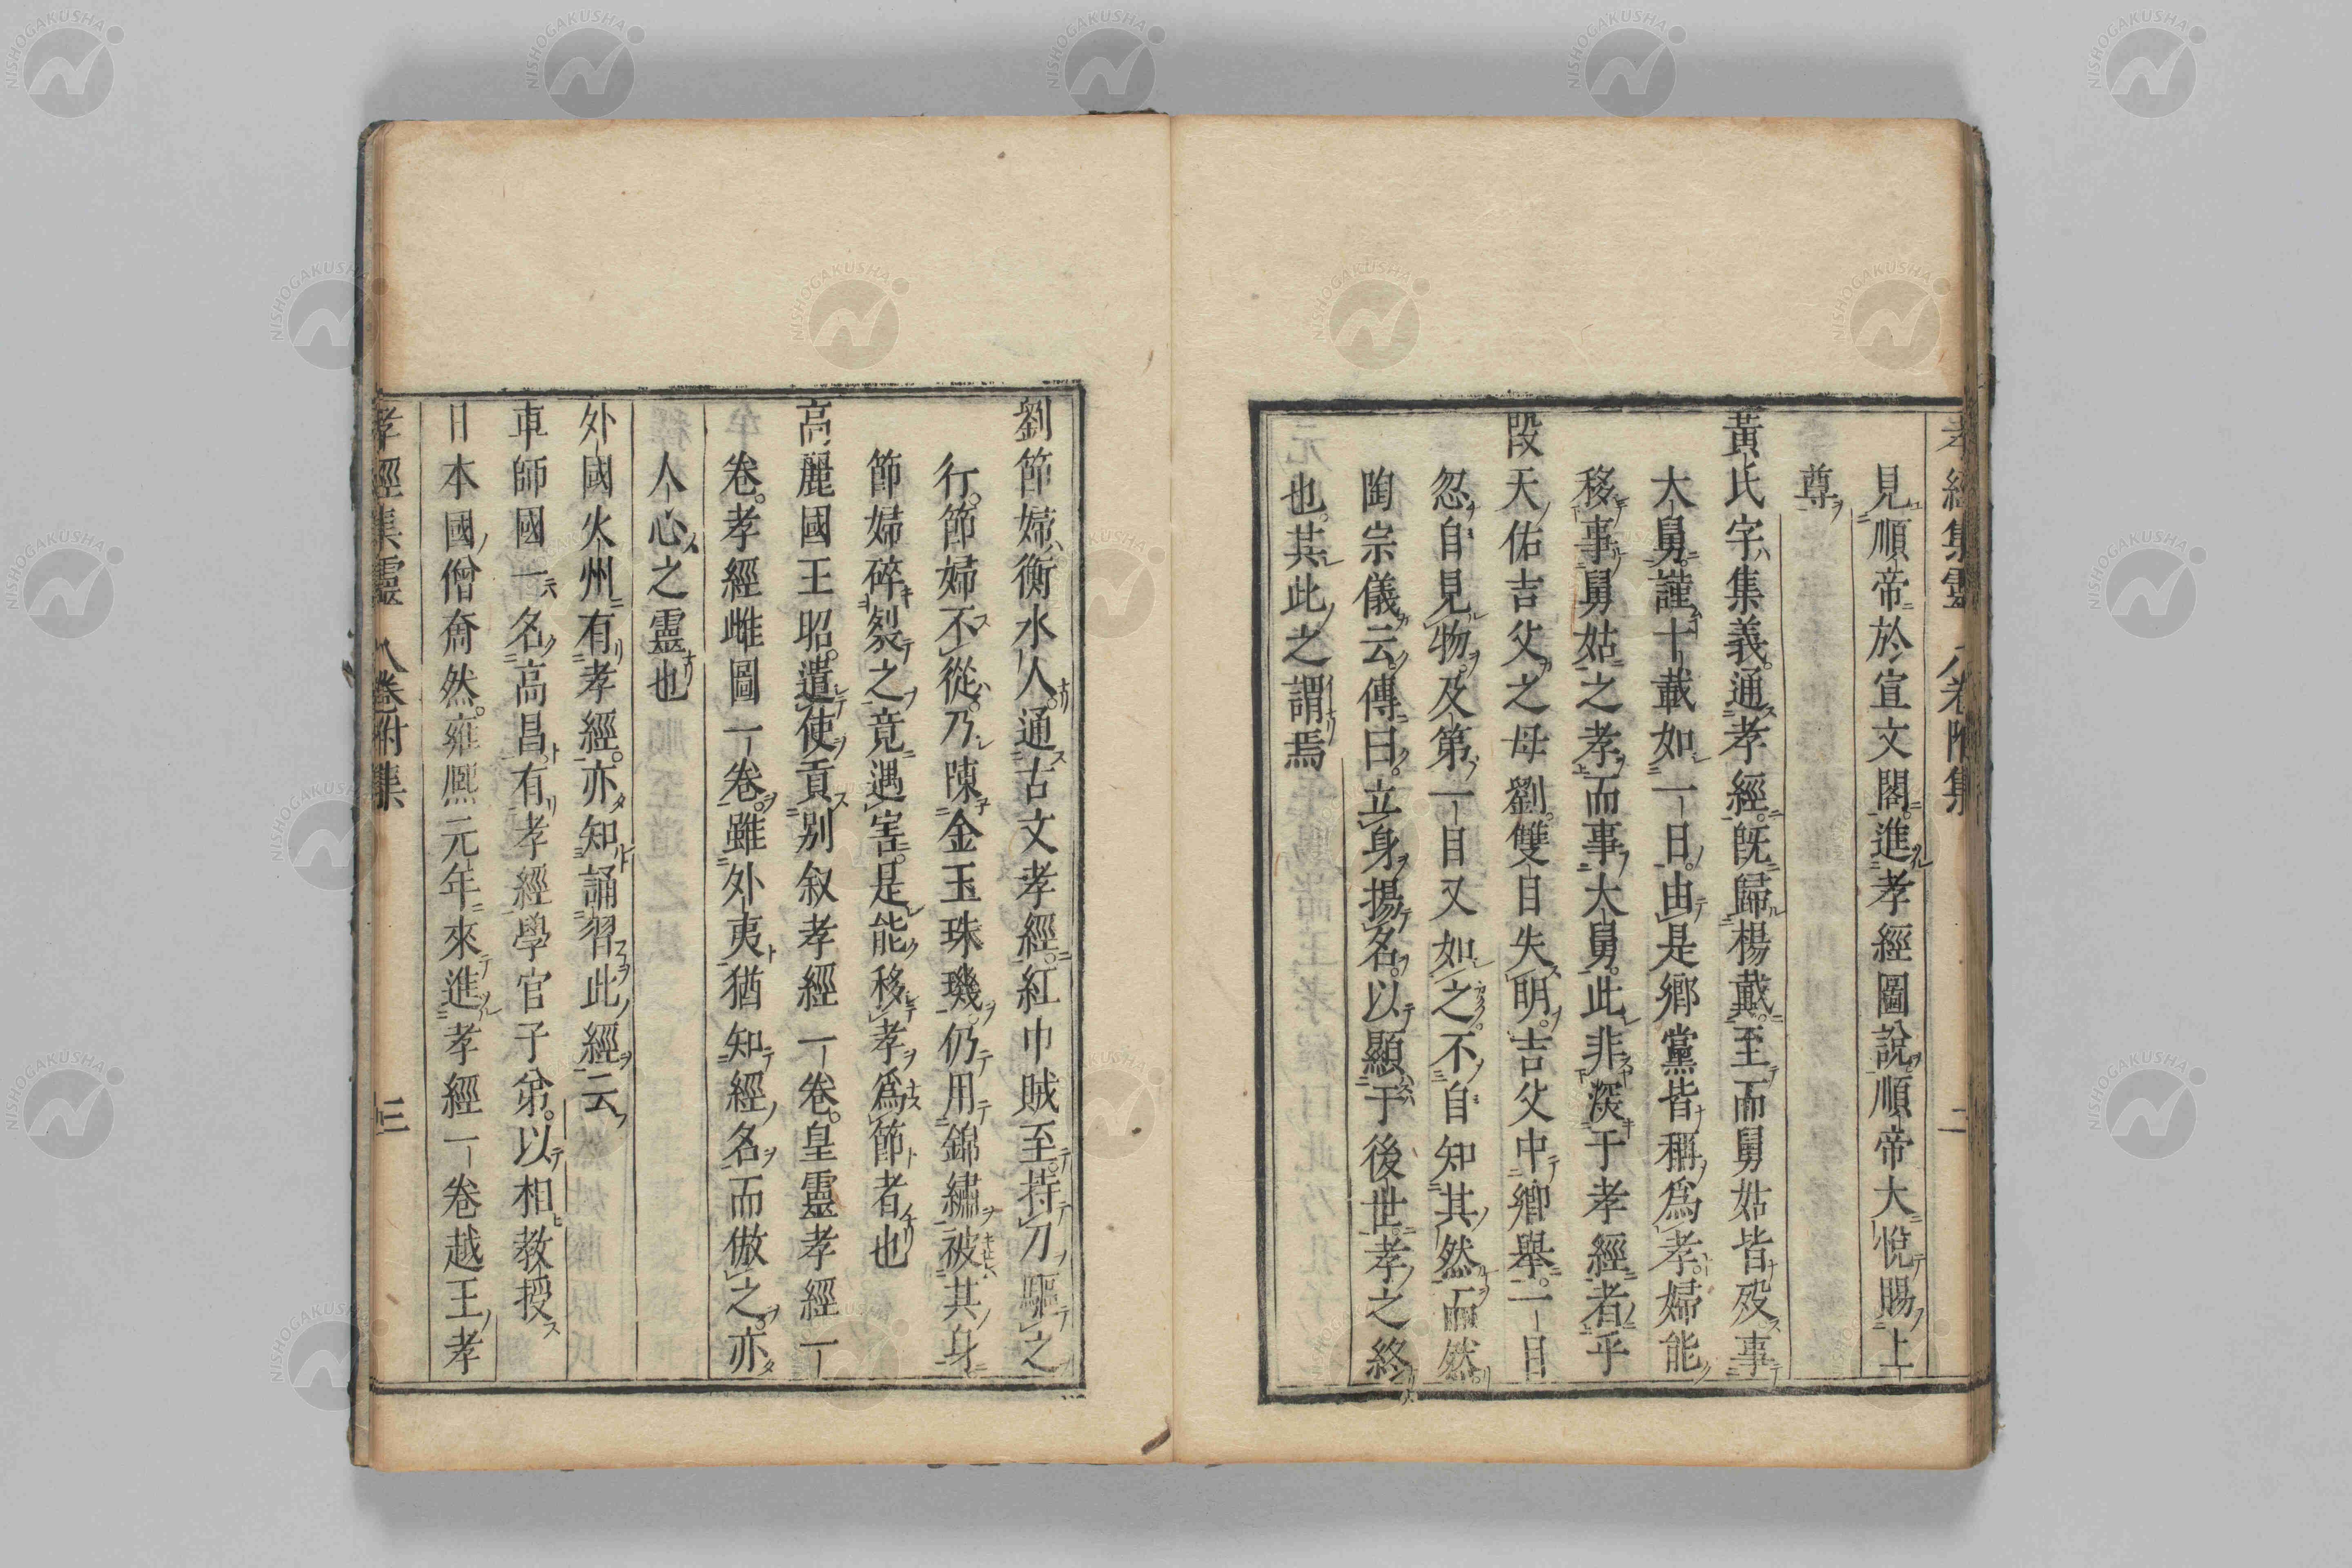 孝經集靈 卷附集 二
見順帝於宣文閣進孝經圖說順帝大悅賜上
尊
黃氏字集義通孝經既歸楊戴至而舅姑皆歿事
大舅謹十載如一日由是鄉黨皆稱為孝婦能
移事舅姑之孝而事大舅此非深于孝經者乎
段天佑吉父之母劉雙目失明吉父中鄉舉二目
忽自見物及第一目又如之不自知其然而然
陶宗儀云傳曰立身揚名以顯于後世孝之終
也其此之謂焉
劉節婦衡水人通古文孝經紅巾賊至持刀驅之
行節婦不從乃陳金玉珠璣仍用錦繡被其身
節婦碎裂之竟遇害是能移孝為節者也
高麗國王昭遣使貢別叙孝經一卷皇靈孝經一
卷孝經雌圖一卷雖外夷猶知經名而倣之亦
人心之靈也
外國火州有孝經亦知誦習此經云
車師國一名高昌有孝經學官子弟以相教授
日本國僧奝然雍熈元年來進孝經一卷越王孝
孝經集靈 卷附集 三
NISHOGAKUSHA